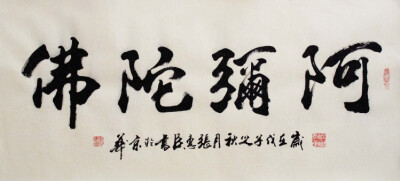 阿彌陀佛
歲在戊子之秋月張惠臣書於京華